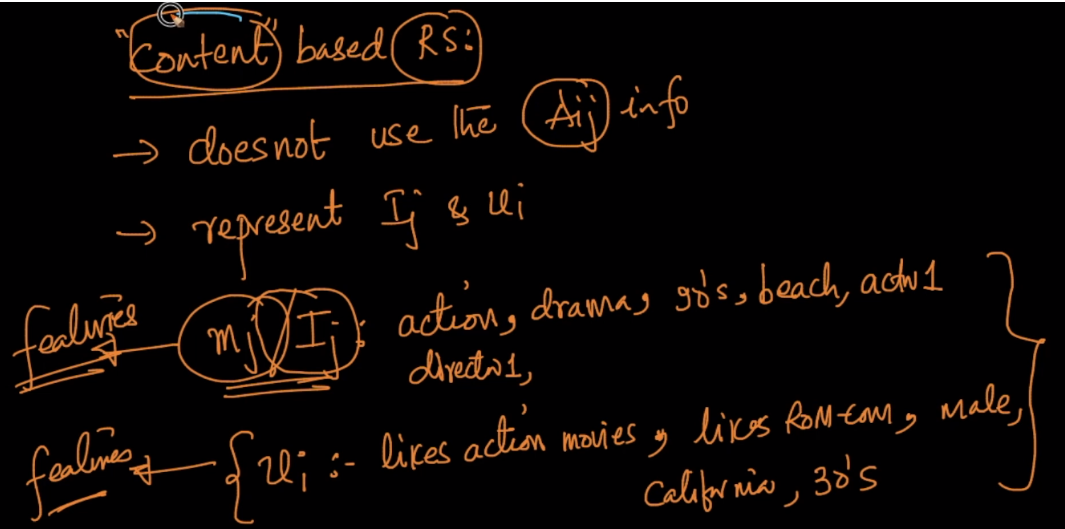 "Content" based RS:
→ does not use the Aij info
→ represent Ij & Ui
features Mj / Ij : action, drama, 90's, beach, actor1
director1,
features { Ui :- likes action movies, likes Rom-com, male,
California, 30's